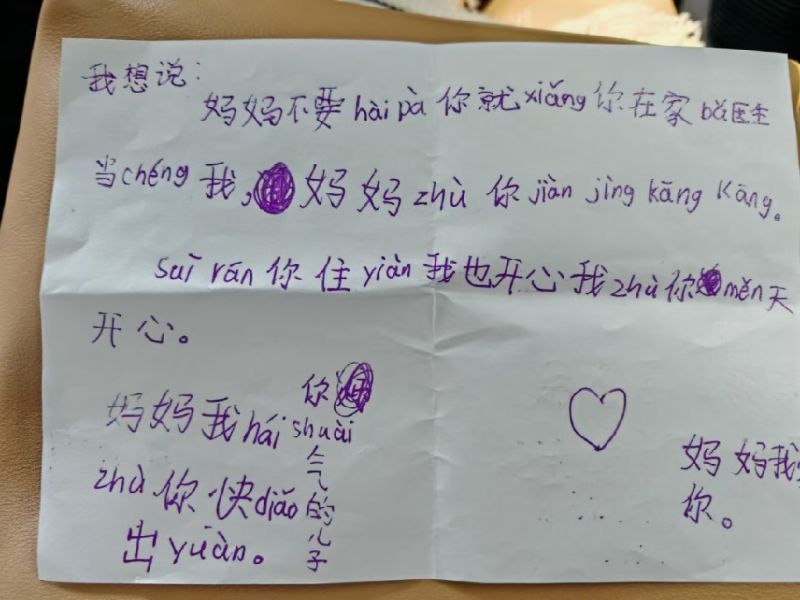 我想说:
妈妈不要hài pà你就xiǎng你在家bǎ医生
当chéng我,妈妈zhù你jiàn jìng kāng kāng。
suī rān你住yiàn我也开心我zhù你měn天
开心。
妈妈我hái
zhù你快diǎo
出yuàn。
你
shuài
气
的
儿
子
妈妈我
你。